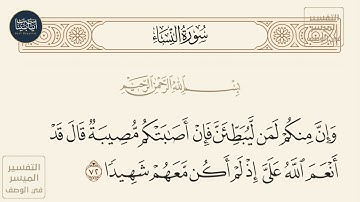 سُورَةُ النِّسَاءِ
بِسْمِ اللَّهِ الرَّحْمَٰنِ الرَّحِيمِ
وَإِنَّ مِنكُمْ لَمَن لَّيُبَطِّئَنَّ فَإِنْ أَصَابَتْكُم مُّصِيبَةٌ قَالَ قَدْ
أَنْعَمَ اللَّهُ عَلَيَّ إِذْ لَمْ أَكُن مَّعَهُمْ شَهِيدًا ٧٢
التفسير
الميسر
في الوصف